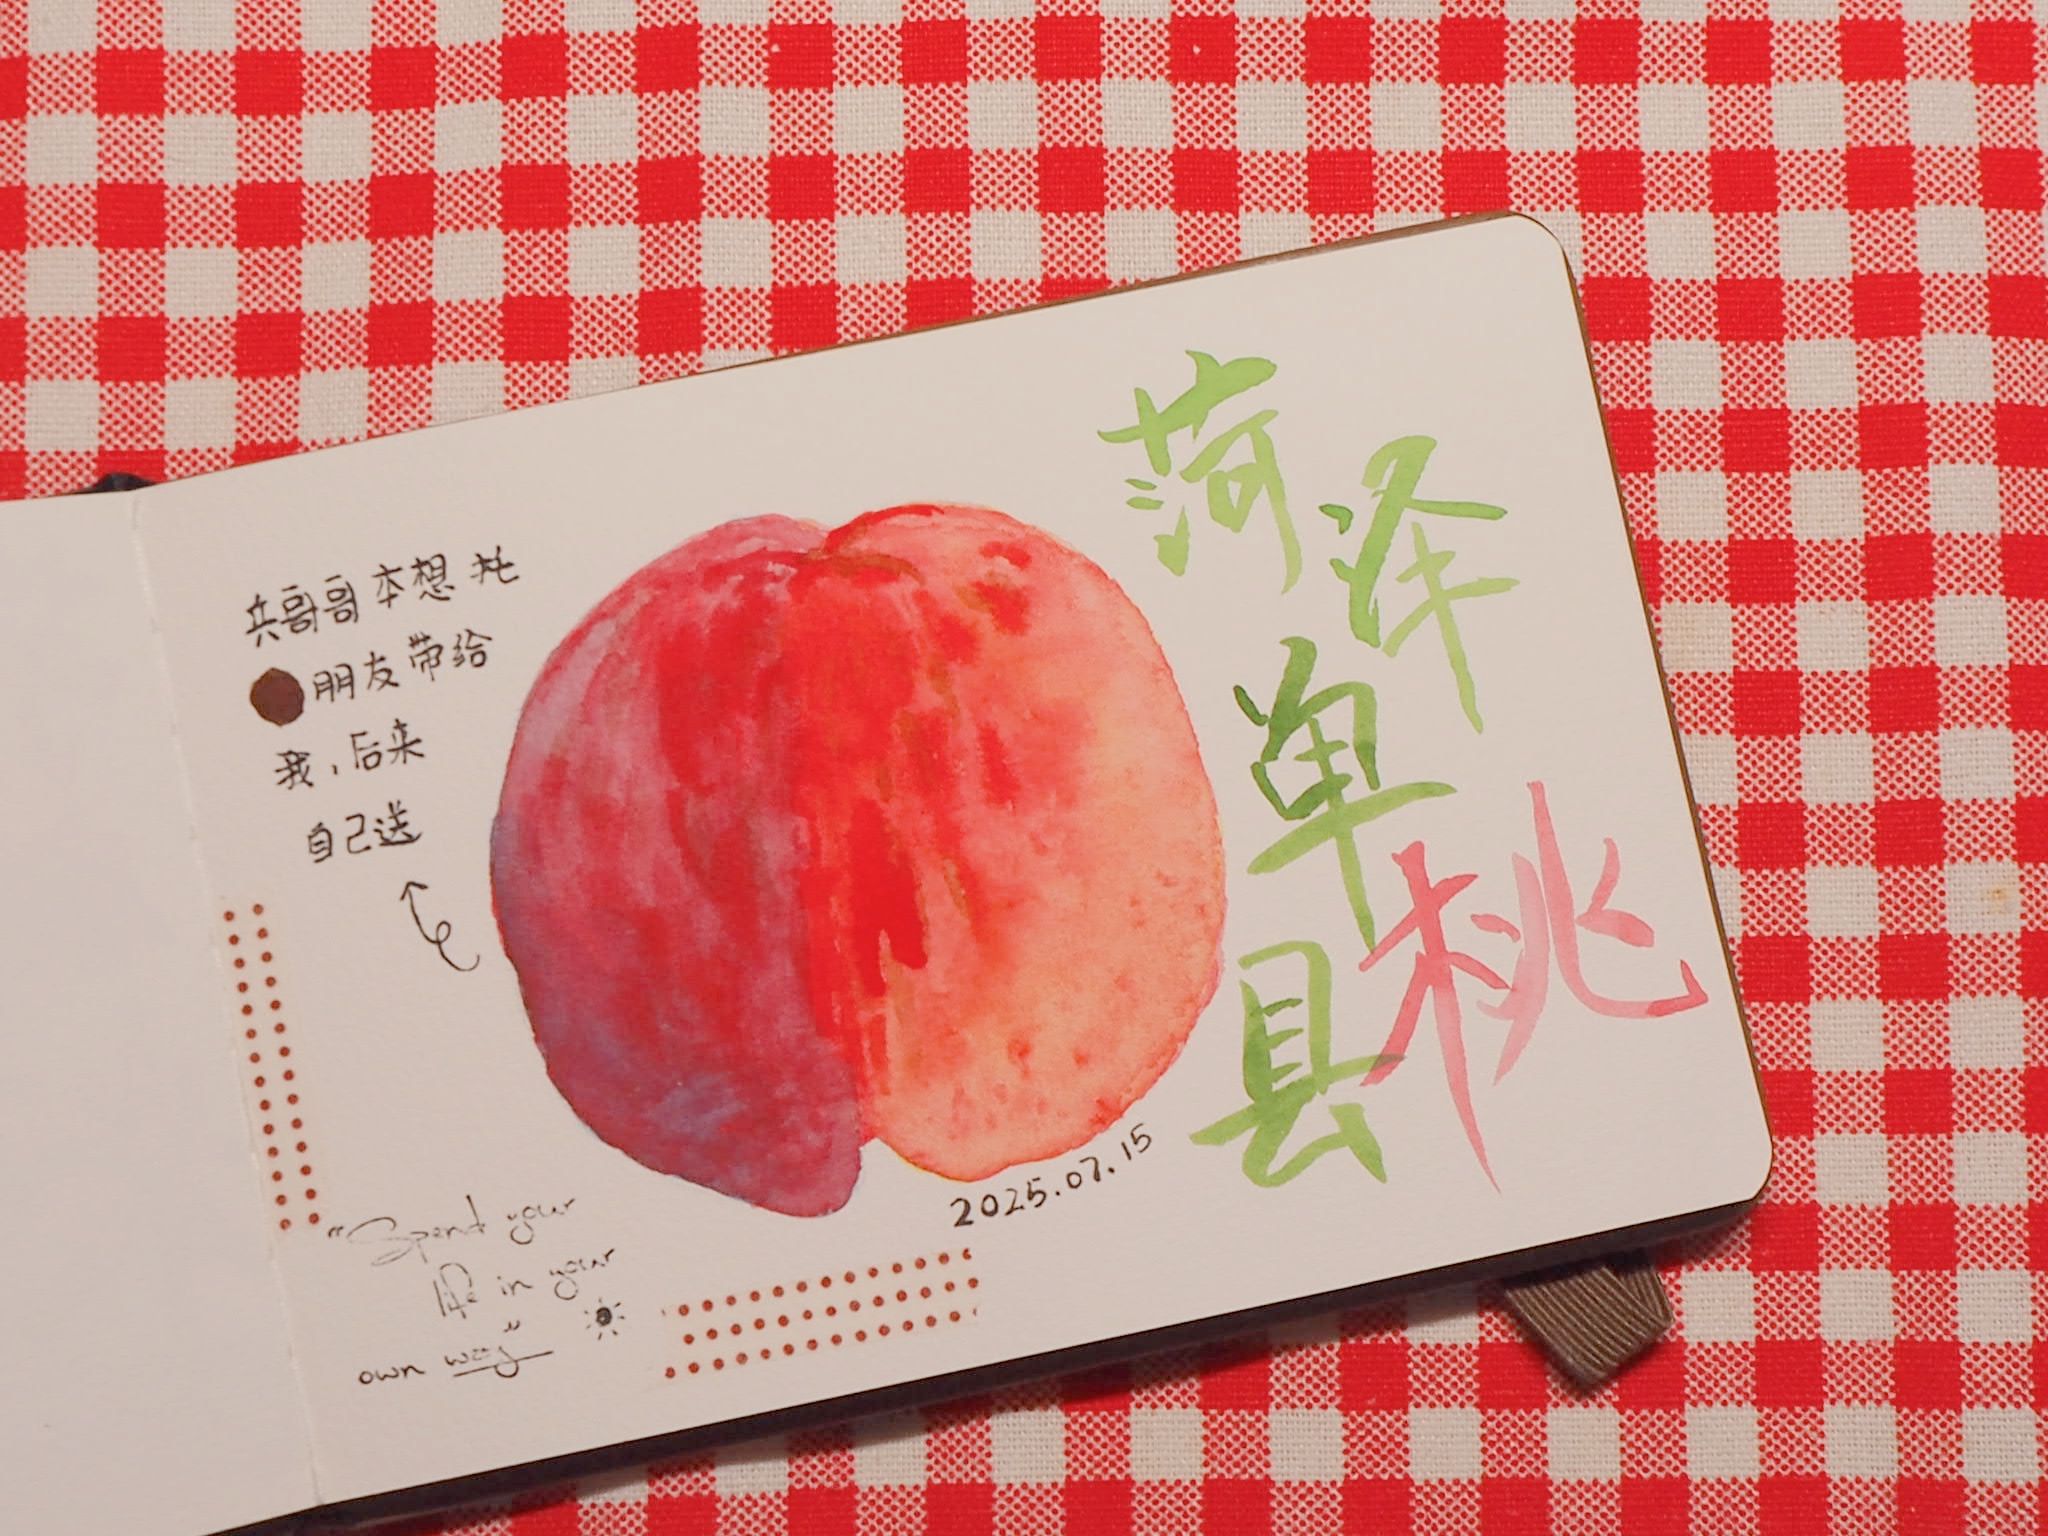 兵哥哥本想托
朋友带给
我，后来
自己送
菏泽
单县
桃
2025.07.15
"Spend your
life in your
own way"